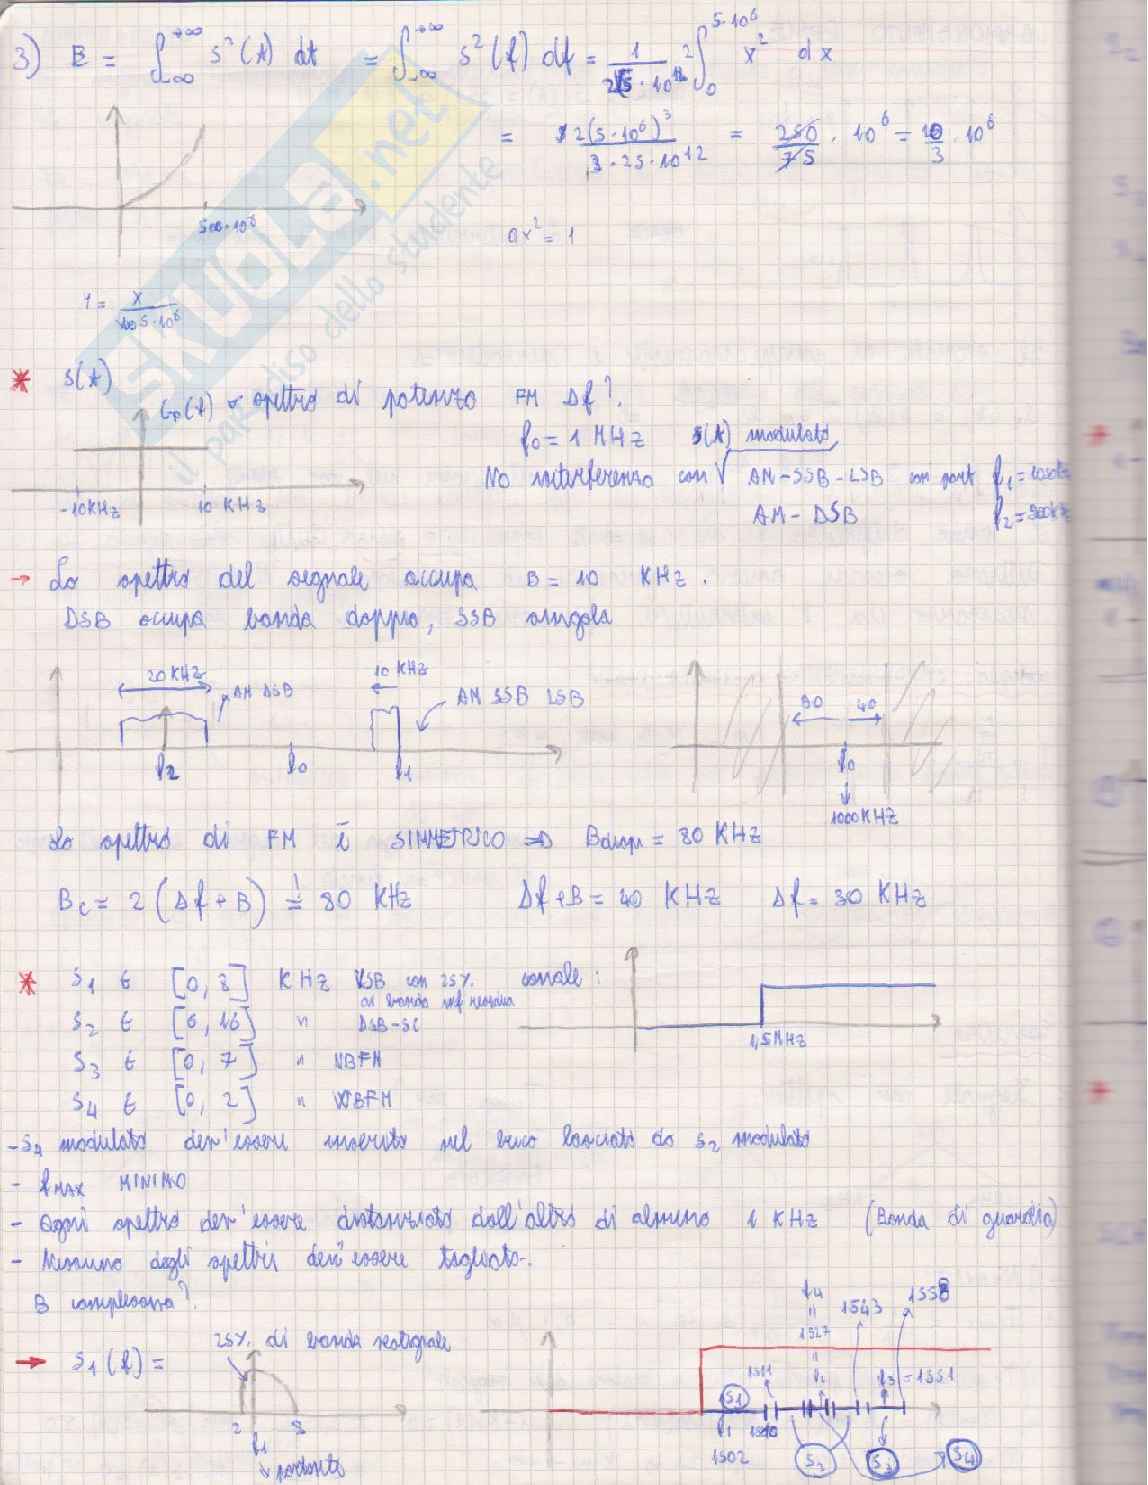 3) E = ∫_{-∞}^{+∞} s²(t) dt = ∫_{-∞}^{+∞} s²(f) df = 1/(25·10¹²) 2∫_0^{5·10⁶} x² dx
= 2(5·10⁶)³/(3·25·10¹²) = 250/75 · 10⁶ = 10/3 · 10⁶
500·10⁶
ax² = 1
1 = x/(5·10⁶)
SKUOLA.net
il paradiso dello studente
* s(t)
Gp(f) α spettro di potenza FM Δf?
f₀ = 1 MHz s(t) modulato
No interferenza con √ AM-SSB-LSB con port f₁ = 1050kHz
AM-DSB f₂ = 900kHz
-10KHz 10 KHz
→ Lo spettro del segnale occupa B = 10 KHz.
DSB occupa banda doppia, SSB singola
20 KHz AM DSB 10 KHz AM SSB LSB
90 40
f₂ f₀ f₁ f₀
1000KHz
Lo spettro di FM è SIMMETRICO ⇒ Bdisp = 80 KHz
Bc = 2(Δf+B) = 80 KHz Δf+B = 40 KHz Δf = 30 KHz
* S₁ ∈ [0, 8] KHz VSB con 25% canale:
di banda inf residua
S₂ ∈ [6, 16] " DSB-SC
1,5MHz
S₃ ∈ [0, 7] " NBFM
S₄ ∈ [0, 2] " NBFM
- S₄ modulato dev'essere inserito nel buco lasciato da S₂ modulato
- fMAX MINIMO
- Ogni spettro dev'essere distanziato dall'altro di almeno 1 KHz (Banda di guardia)
- Nessuno degli spettri dev'essere tagliato.
B complessiva?
25% di banda residuale
→ S₁(f) =
2 8
f₁
↓ portante
f₄ = 1527 = f₂
1543 1558
1511 f₃ = 1551
S1
f₁ 1510
1502
S₂ S₃ S₄